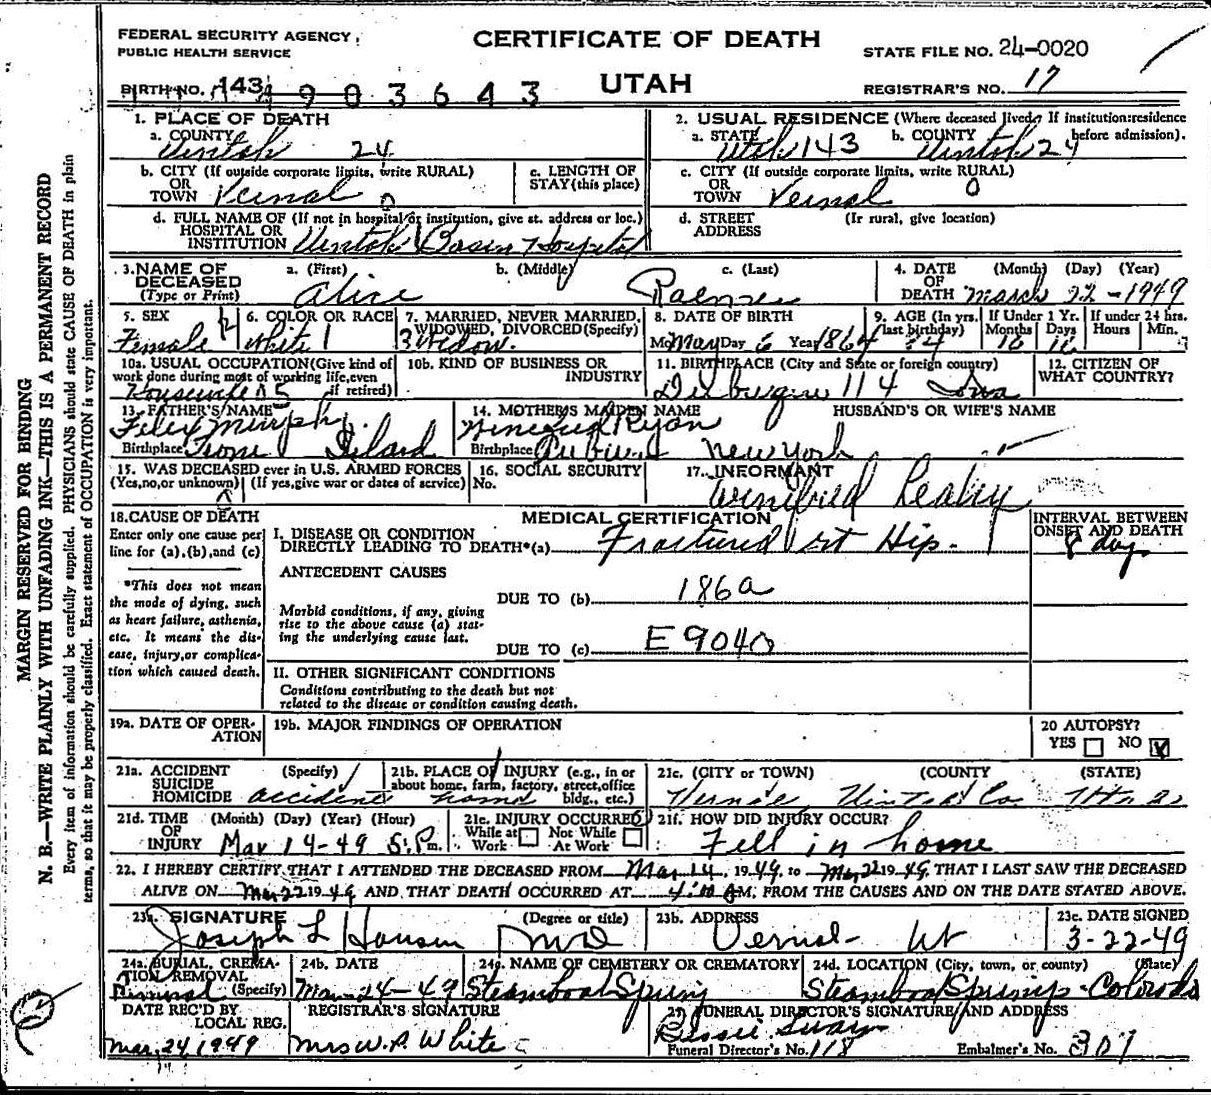 FEDERAL SECURITY AGENCY
PUBLIC HEALTH SERVICE
CERTIFICATE OF DEATH
UTAH
STATE FILE NO. 24-0020
REGISTRAR'S NO. 17
BIRTH NO. 143 1903643
1. PLACE OF DEATH
a. COUNTY Uintah 24
2. USUAL RESIDENCE (Where deceased lived. If institution:residence before admission).
a. STATE Utah 143 b. COUNTY Uintah 24
b. CITY (If outside corporate limits, write RURAL)
OR
TOWN Vernal 0
c. LENGTH OF
STAY (this place)
c. CITY (If outside corporate limits, write RURAL)
OR
TOWN Vernal 0
d. FULL NAME OF (If not in hospital or institution, give st. address or loc.)
HOSPITAL OR
INSTITUTION Uintah Basin Hospital
d. STREET (If rural, give location)
ADDRESS
3. NAME OF DECEASED (Type or Print)
a. (First) b. (Middle) c. (Last)
Alice
4. DATE OF DEATH (Month) (Day) (Year)
March 22-1949
5. SEX
Female 2
6. COLOR OR RACE
White 1
7. MARRIED, NEVER MARRIED, WIDOWED, DIVORCED (Specify)
3 Widow.
8. DATE OF BIRTH
Mo May Day 6 Year 1864
9. AGE (In yrs. last birthday) 84
If Under 1 Yr. Months 10 Days 16
If under 24 hrs. Hours Min.
10a. USUAL OCCUPATION (Give kind of work done during most of working life, even if retired)
Housewife
10b. KIND OF BUSINESS OR INDUSTRY
11. BIRTHPLACE (City and State or foreign country)
114 Iowa
12. CITIZEN OF WHAT COUNTRY?
13. FATHER'S NAME
Felix Murphy
Birthplace
14. MOTHER'S MAIDEN NAME
Ryan
Birthplace New York
HUSBAND'S OR WIFE'S NAME
15. WAS DECEASED ever in U.S. ARMED FORCES
(Yes, no, or unknown) (If yes, give war or dates of service)
16. SOCIAL SECURITY
No.
17. INFORMANT
Winifred Leahy
18. CAUSE OF DEATH
Enter only one cause per
line for (a), (b), and (c)
*This does not mean
the mode of dying, such
as heart failure, asthenia,
etc. It means the dis-
ease, injury, or complica-
tion which caused death.
MEDICAL CERTIFICATION
INTERVAL BETWEEN
ONSET AND DEATH
I. DISEASE OR CONDITION
DIRECTLY LEADING TO DEATH*(a) Fractured rt Hip.
8 days
ANTECEDENT CAUSES
DUE TO (b) 186a
Morbid conditions, if any, giving
rise to the above cause (a) stat-
ing the underlying cause last.
DUE TO (c) E9040
II. OTHER SIGNIFICANT CONDITIONS
Conditions contributing to the death but not
related to the disease or condition causing death.
19a. DATE OF OPER-
ATION
19b. MAJOR FINDINGS OF OPERATION
20 AUTOPSY?
YES NO
21a. ACCIDENT (Specify)
SUICIDE
HOMICIDE accident
21b. PLACE OF INJURY (e.g., in or
about home, farm, factory, street, office
bldg., etc.) home
21c. (CITY or TOWN) (COUNTY) (STATE)
Vernal, Uintah Co Utah
21d. TIME (Month) (Day) (Year) (Hour)
OF
INJURY Mar 14-49 5 Pm.
21e. INJURY OCCURRED
While at Work Not While At Work
21f. HOW DID INJURY OCCUR?
Fell in home
22. I HEREBY CERTIFY THAT I ATTENDED THE DECEASED FROM Mar 14, 1949, to Mar 22 1949, THAT I LAST SAW THE DECEASED
ALIVE ON Mar 22 1949 AND THAT DEATH OCCURRED AT 4:10 AM, FROM THE CAUSES AND ON THE DATE STATED ABOVE.
23a. SIGNATURE (Degree or title)
Joseph L Hansen MD
23b. ADDRESS
Vernal- Ut
23c. DATE SIGNED
3-22-49
24a. BURIAL, CREMA-
TION REMOVAL
(Specify) Removal
24b. DATE
Mar-24-49
24c. NAME OF CEMETERY OR CREMATORY
Steamboat Spring
24d. LOCATION (City, town, or county) (State)
Steamboat Springs-Colorado
DATE REC'D BY
LOCAL REG.
Mar, 24, 1949
REGISTRAR'S SIGNATURE
Mrs W. P. White
25. FUNERAL DIRECTOR'S SIGNATURE AND ADDRESS
Bessie Swain
Funeral Director's No. 118 Embalmer's No. 307
MARGIN RESERVED FOR BINDING
N. B.—WRITE PLAINLY WITH UNFADING INK—THIS IS A PERMANENT RECORD
Every item of information should be carefully supplied. PHYSICIANS should state CAUSE OF DEATH in plain
terms, so that it may be properly classified. Exact statement of OCCUPATION is very important.